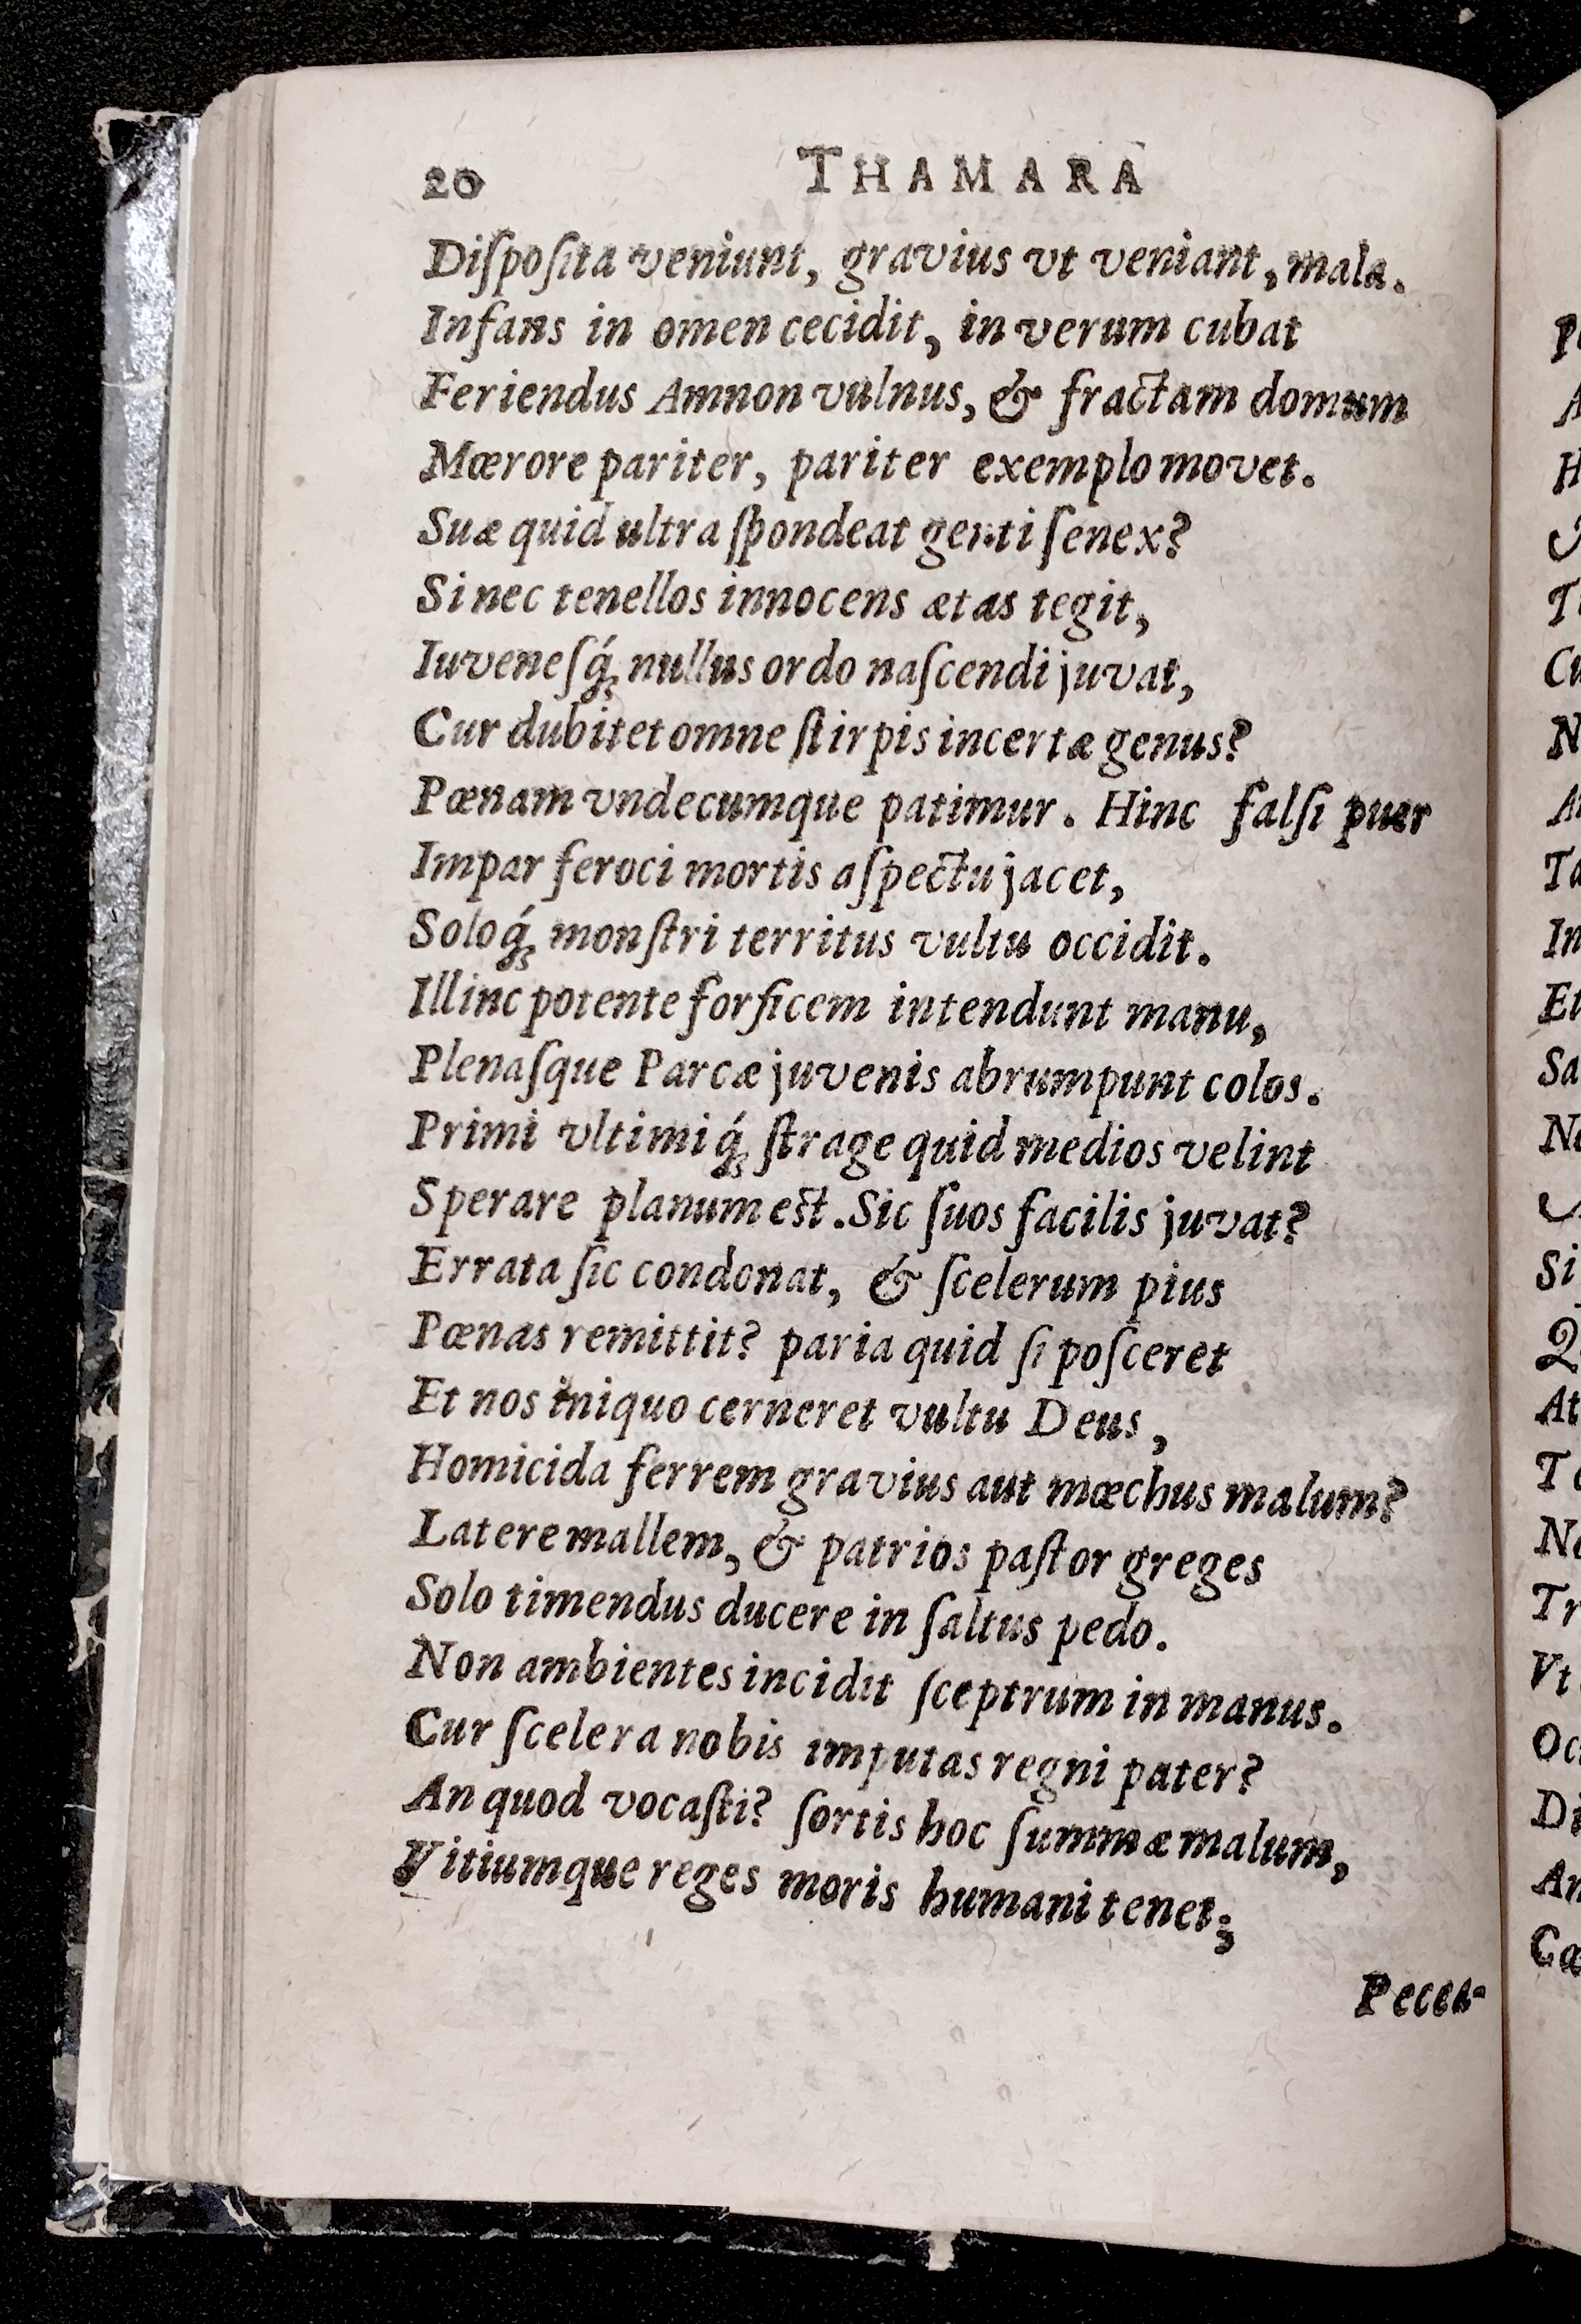 20 THAMARA
Diſpoſita veniunt, gravius vt veniant, mala.
Infans in omen cecidit, in verum cubat
Feriendus Amnon vulnus, & fractam domum
Mœrore pariter, pariter exemplo movet.
Suæ quid ultra ſpondeat genti ſenex?
Si nec tenellos innocens ætas tegit,
Iuveneſq́; nullus ordo naſcendi juvat,
Cur dubitet omne ſtirpis incertæ genus?
Pœnam vndecumque patimur. Hinc falſi puer
Impar feroci mortis aſpectu jacet,
Soloq́; monſtri territus vultu occidit.
Illinc potente forficem intendunt manu,
Plenaſque Parcæ juvenis abrumpunt colos.
Primi vltimiq́; ſtrage quid medios velint
Sperare planum est. Sic ſuos facilis juvat?
Errata ſic condonat, & ſcelerum pius
Pœnas remittit? paria quid ſi poſceret
Et nos iniquo cerneret vultu Deus,
Homicida ferrem gravius aut mœchus malum?
Latere mallem, & patrios paſtor greges
Solo timendus ducere in ſaltus pedo.
Non ambientes incidit ſceptrum in manus.
Cur ſcelera nobis imputas regni pater?
An quod vocaſti? ſortis hoc ſummæ malum,
Vitiumque reges moris humani tenet;